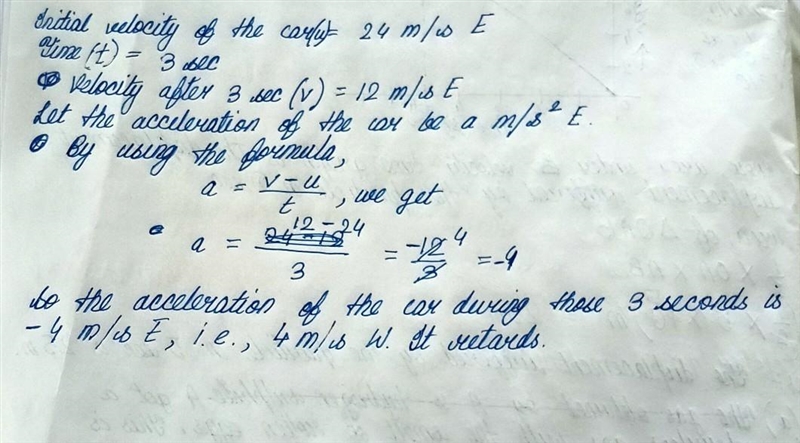 Initial velocity of the car(u)= 24 m/s E
Time (t) = 3 sec
Velocity after 3 sec (v) = 12 m/s E
Let the acceleration of the car be a m/s² E.
By using the formula,
a = v-u / t , we get
a = 12-24 / 3 = -12 4 / 3 = -4
So the acceleration of the car during those 3 seconds is
-4 m/s E, i.e., 4 m/s W. It retards.